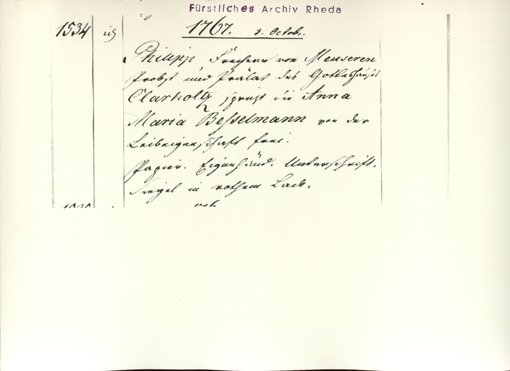 Fürstliches Archiv Rheda
1534 1767. 3. Octob.
Philipp Freiherr von Meuseren
Probst und Prälat des Gotteshauses
Clarholtz spricht die Anna
Maria Besselmann von der
Leibeigenschaft frei.
Papier. Eigenhänd. Unterschrift.
Siegel in rothem Lack.